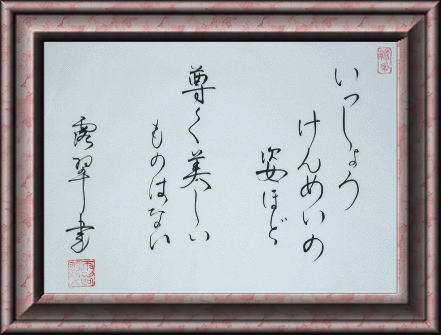 いっしょう
けんめいの
姿ほど
尊く美しい
ものはない
露翠書